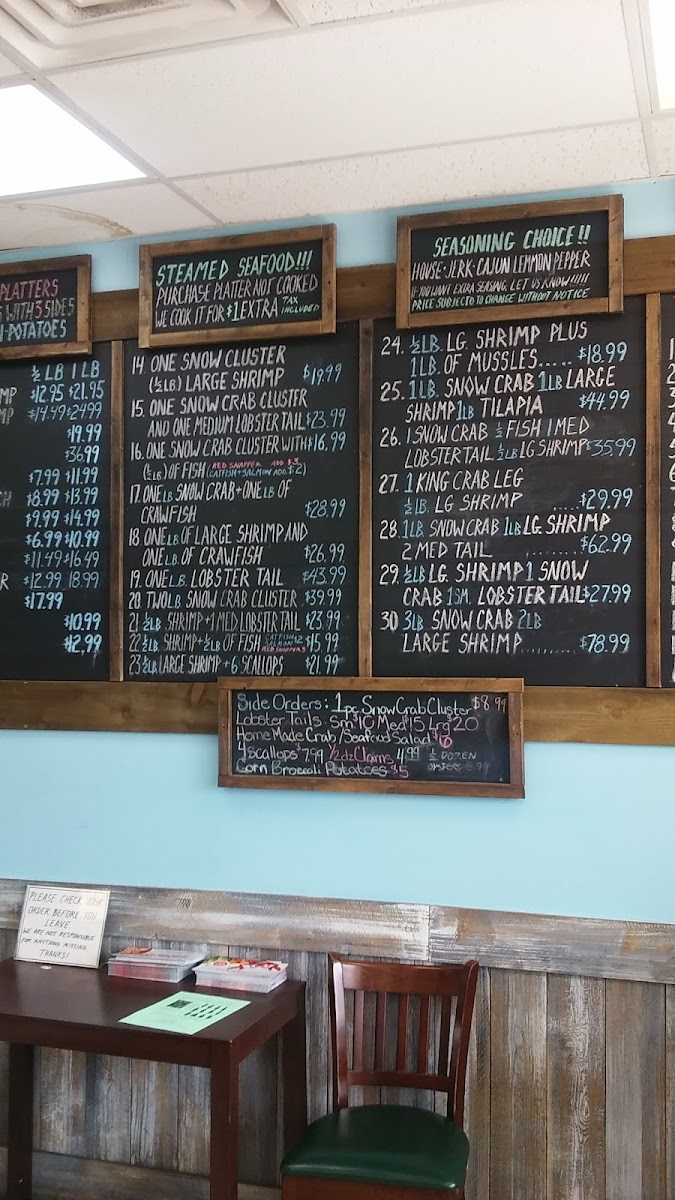 PLATTERS
WITH 3 SIDES
POTATOES
½ LB 1 LB
$12.95 $21.95
$14.49 $24.99
$19.99
$36.99
$7.99 $11.99
$8.99 $13.99
$9.99 $14.99
$6.99 $10.99
$11.49 $16.49
$12.99 18.99
$17.99
$10.99
$12.99
STEAMED SEAFOOD!!!
PURCHASE PLATTER NOT COOKED
WE COOK IT FOR $1 EXTRA TAX INCLUDED
14. ONE SNOW CLUSTER
(½LB) LARGE SHRIMP $19.99
15. ONE SNOW CRAB CLUSTER
AND ONE MEDIUM LOBSTER TAIL $23.99
16. ONE SNOW CRAB CLUSTER WITH $16.99
(½LB) OF FISH (RED SNAPPER ADD $3 CATFISH + SALMON ADD $2)
17. ONE LB SNOW CRAB + ONE LB OF
CRAWFISH $28.99
18. ONE LB OF LARGE SHRIMP AND
ONE LB. OF CRAWFISH $26.99
19. ONE LB. LOBSTER TAIL $43.99
20. TWO LB SNOW CRAB CLUSTER $39.99
21. ½LB SHRIMP + 1 MED LOBSTER TAIL $23.99
22. ½LB. SHRIMP + ½LB OF FISH CATFISH + 2 SALMON RED SNAPPER 3 $15.99
23. ½LB LARGE SHRIMP + 6 SCALLOPS $21.99
SEASONING CHOICE!!
HOUSE - JERK - CAJUN LEMMON PEPPER
IF YOU WANT EXTRA SEASING, LET US KNOW!!!!!
PRICE SUBJECT TO CHANGE WITHOUT NOTICE
24. ½LB. LG. SHRIMP PLUS
1LB. OF MUSSLES..... $18.99
25. 1LB. SNOW CRAB 1LB LARGE
SHRIMP 1LB TILAPIA $44.99
26. 1 SNOW CRAB ½ FISH 1 MED
LOBSTER TAIL ½LB LG SHRIMP $35.99
27. 1 KING CRAB LEG
½LB. LG SHRIMP ..... $29.99
28. 1LB. SNOW CRAB 1LB LG. SHRIMP
2 MED TAIL ......... $62.99
29. ½LB LG. SHRIMP 1 SNOW
CRAB 1SM. LOBSTER TAIL $27.99
30 3LB SNOW CRAB 2LB
LARGE SHRIMP ...... $78.99
Side Orders: 1pc Snow Crab Cluster $8.99
Lobster Tails. Sm $10 Med $15 Lrg $20
Home Made Crab/Seafood Salad $6
4 scallops $7.99 1/2dz Clams 4.99 ½ DOZEN
Corn Broccoli Potatoes $5 OYSTERS 8.99
PLEASE CHECK YOUR
ORDER BEFORE YOU
LEAVE
WE ARE NOT RESPONSIBLE
FOR ANYTHING MISSING
THANKS!